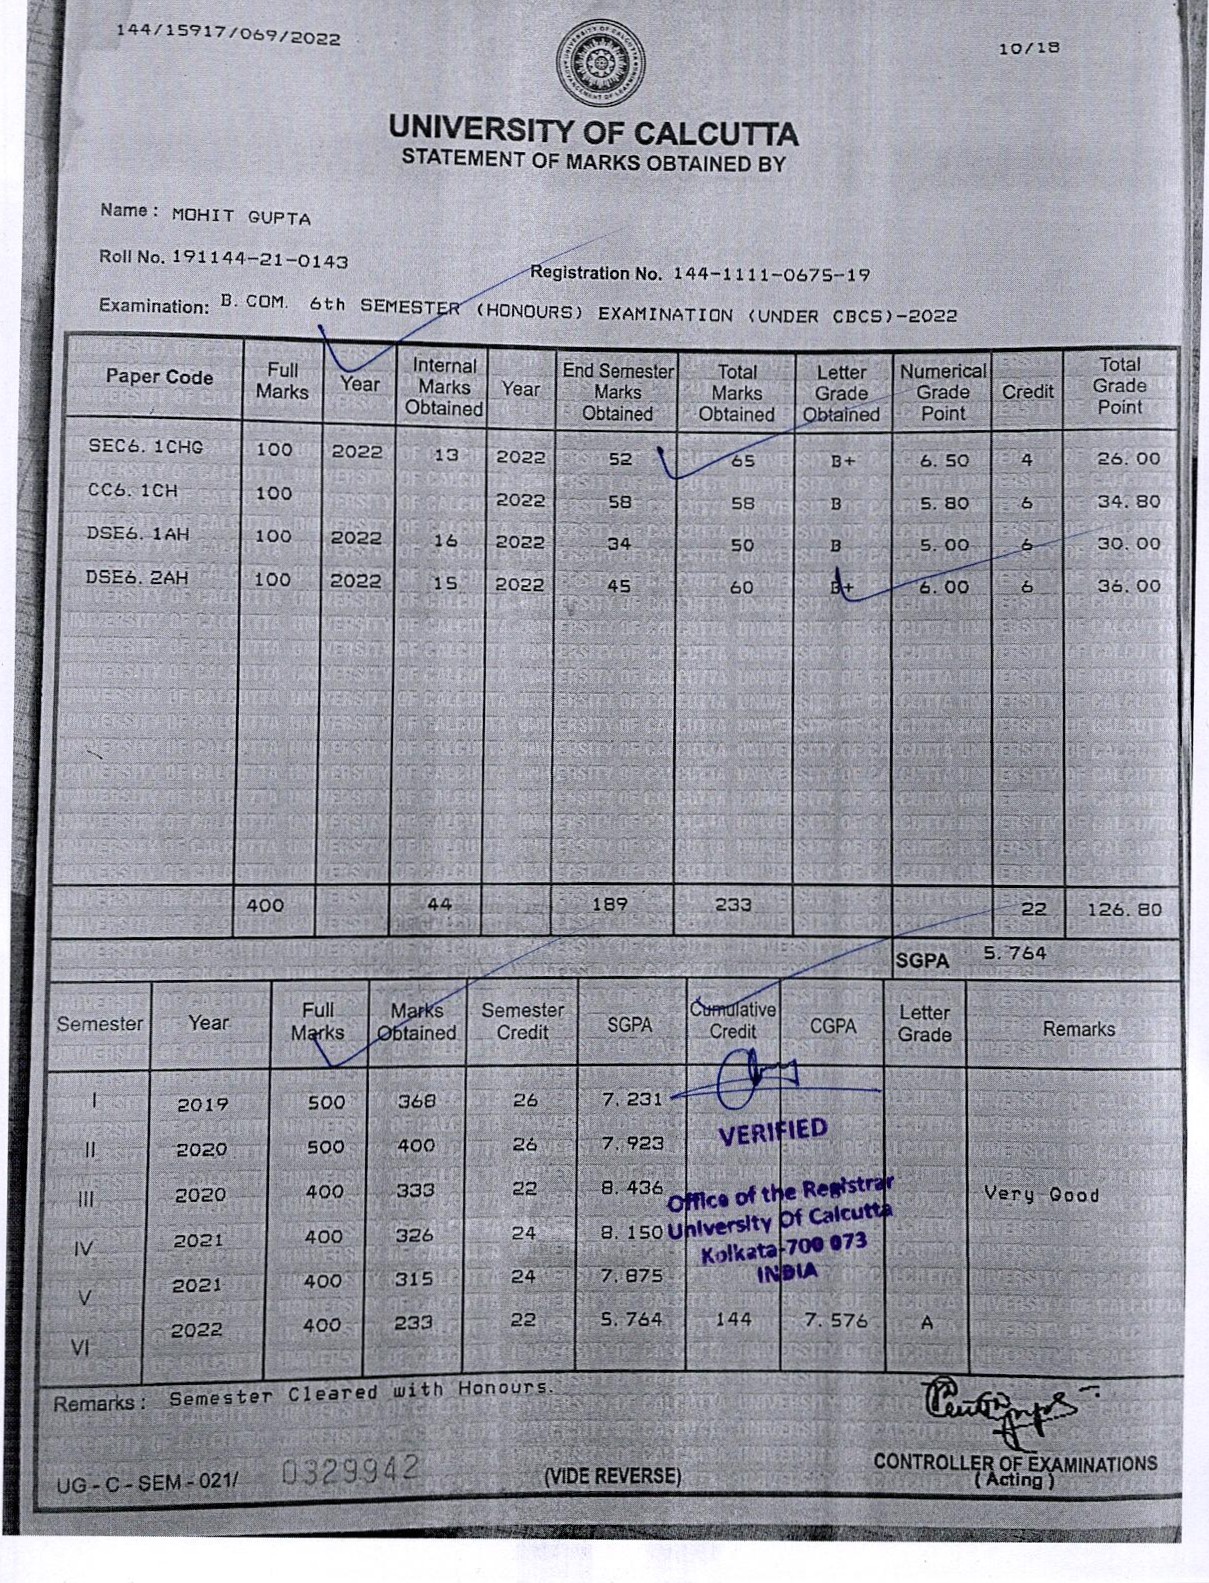 144/15917/069/2022
10/18
UNIVERSITY OF CALCUTTA
ADVANCEMENT OF LEARNING
UNIVERSITY OF CALCUTTA
STATEMENT OF MARKS OBTAINED BY
Name : MOHIT GUPTA
Roll No. 191144-21-0143
Registration No. 144-1111-0675-19
Examination: B. COM. 6th SEMESTER (HONOURS) EXAMINATION (UNDER CBCS)-2022
Paper Code Full Marks Year Internal Marks Obtained Year End Semester Marks Obtained Total Marks Obtained Letter Grade Obtained Numerical Grade Point Credit Total Grade Point
SEC6. 1CHG 100 2022 13 2022 52 65 B+ 6. 50 4 26. 00
CC6. 1CH 100 2022 58 58 B 5. 80 6 34. 80
DSE6. 1AH 100 2022 16 2022 34 50 B 5. 00 6 30. 00
DSE6. 2AH 100 2022 15 2022 45 60 B+ 6. 00 6 36. 00
400 44 189 233 22 126. 80
SGPA 5. 764
Semester Year Full Marks Marks Obtained Semester Credit SGPA Cumulative Credit CGPA Letter Grade Remarks
I 2019 500 368 26 7. 231
II 2020 500 400 26 7. 923
III 2020 400 333 22 8. 436 Very Good
IV 2021 400 326 24 8. 150
V 2021 400 315 24 7. 875
VI 2022 400 233 22 5. 764 144 7. 576 A
VERIFIED
Office of the Registrar
University Of Calcutta
Kolkata-700 073
INDIA
Remarks : Semester Cleared with Honours.
CONTROLLER OF EXAMINATIONS
(Acting)
UG - C - SEM - 021/ 0329942
(VIDE REVERSE)